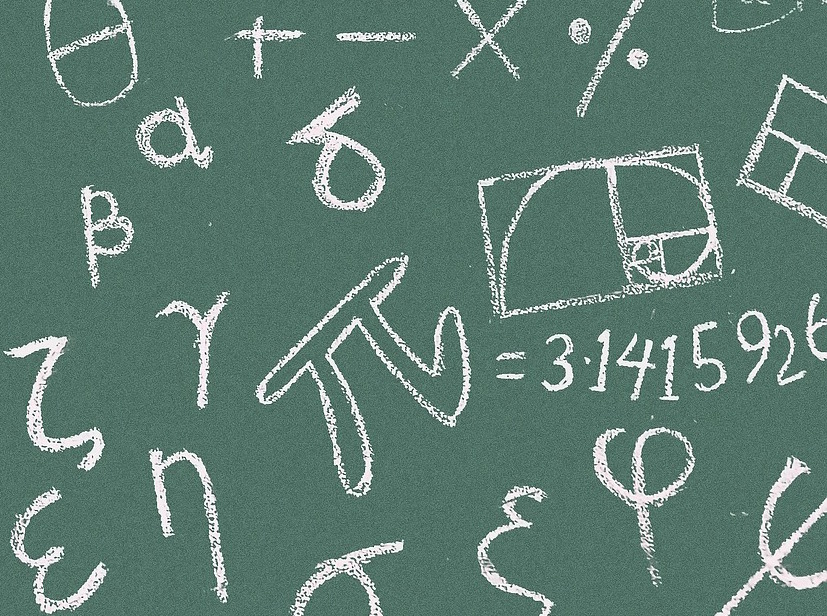 θ + − × %
α δ
β
γ
π = 3.1415926
ζ
η φ
ε σ ξ ψ